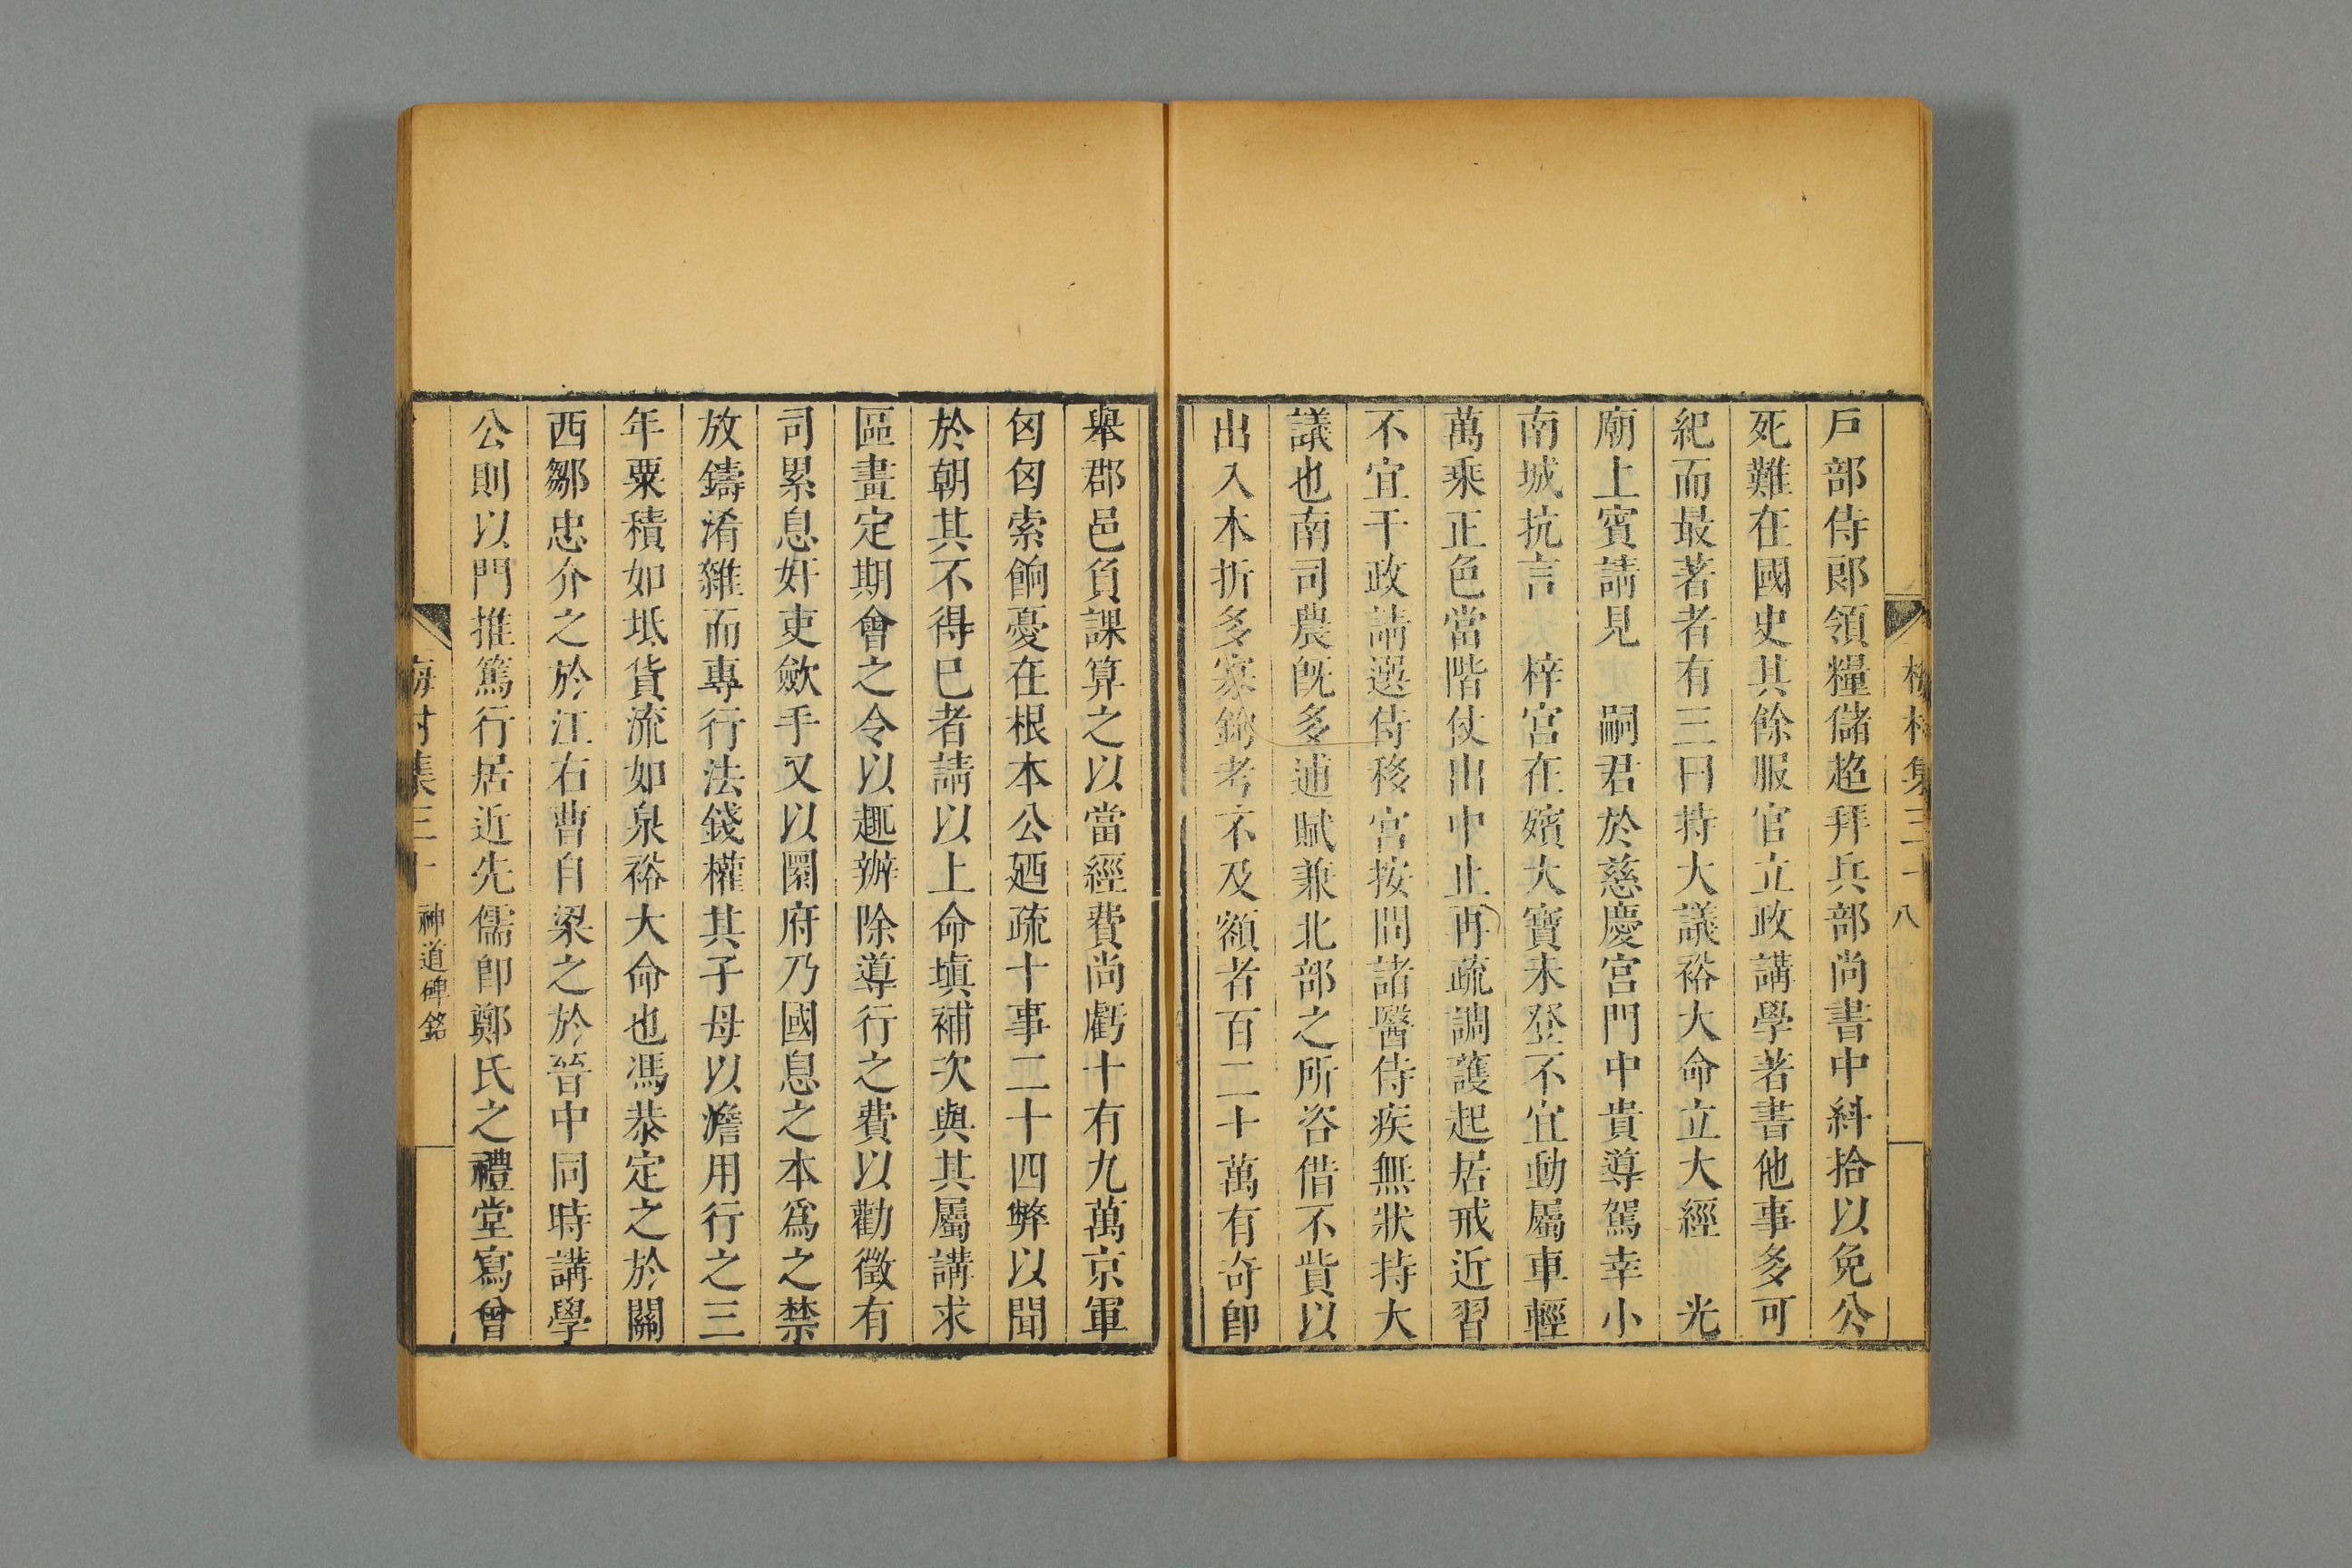 戸部侍郎領糧儲趋拜兵部尚書中糾拾以免公
死難在國史其餘服官立政講學著書他事多可
紀而最著者有三曰持大議裕大命立大經 光
廟上賓請見 嗣君於慈慶宮門中貴導駕幸小
南城抗言 梓宮在殯大寶未登不宜動屬車輕
萬乘正色當階仗出中止再疏調護起居戒近習
不宜干政請選侍移宮按問諸醫侍疾無狀持大
議也南司農旣多逋賦兼北部之所咨借不貲以
出入本折多寡銖考不及額者百二十萬有奇卽
舉郡邑負課算之以當經費尚虧十有九萬京軍
匈匈索餉憂在根本公廼疏十事二十四弊以聞
於朝其不得已者請以上命塡補次與其屬講求
區畫定期會之令以趣辦除導行之費以勸徵有
司累息奸吏歛手又以圜府乃國息之本爲之禁
放鑄淆雜而專行法錢權其子母以澹用行之三
年粟積如坻貨流如泉裕大命也馮恭定之於關
西鄒忠介之於江右曹自梁之於晉中同時講學
公則以門推篤行居近先儒卽鄭氏之禮堂寫曾
梅村集三十 神道碑銘